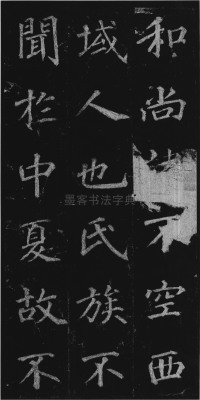 和尚諱不空西
域人也氏族不
聞於中夏故不
墨客书法字典